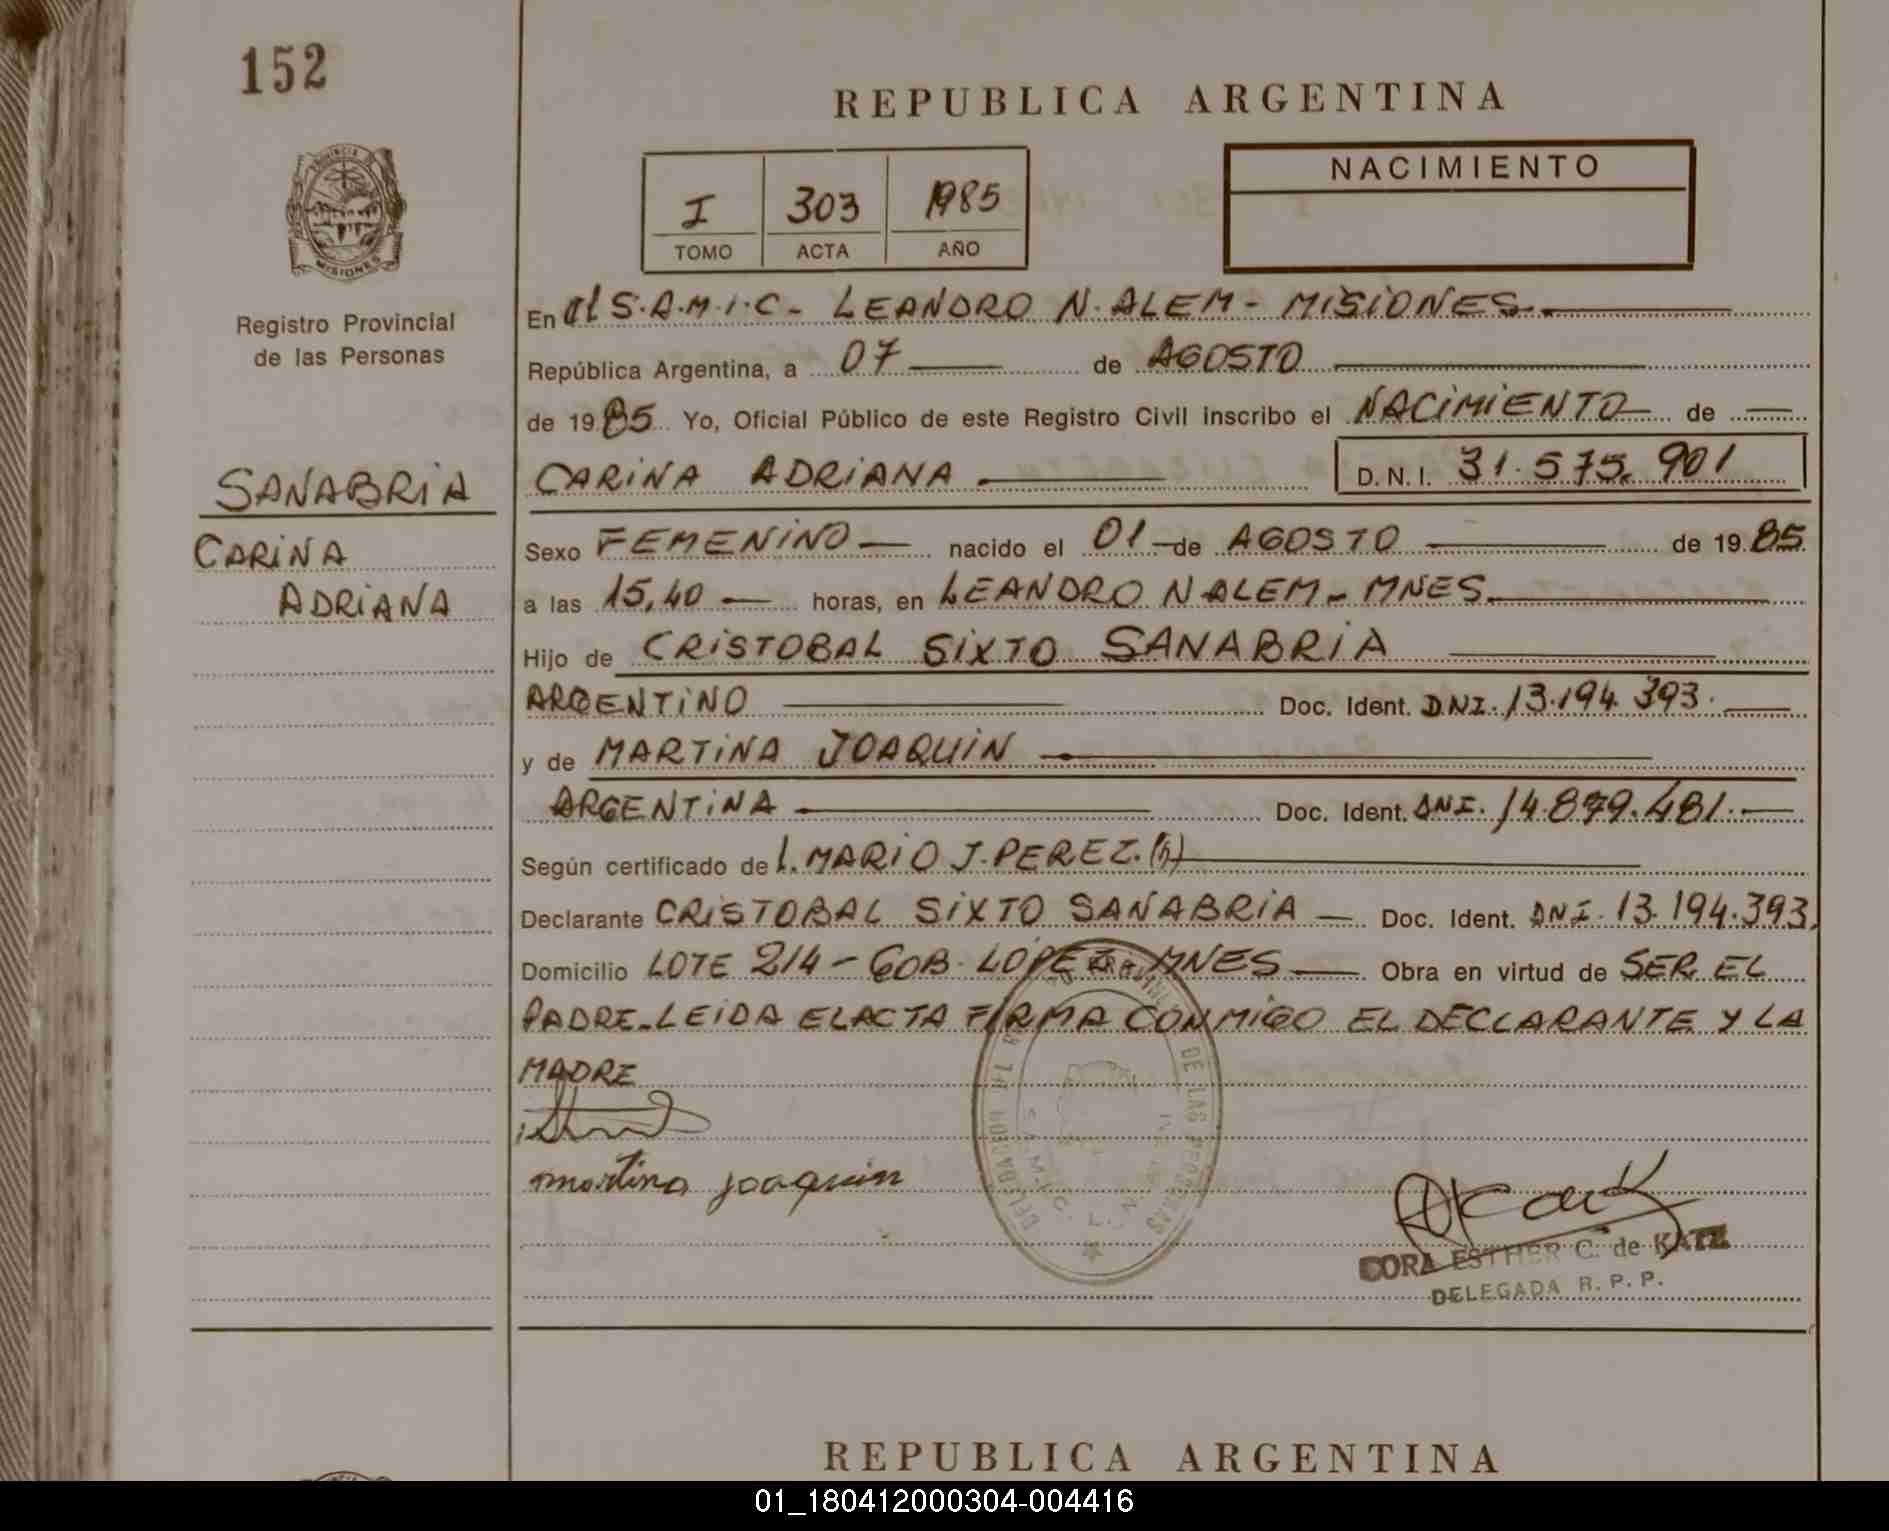 152
REPUBLICA ARGENTINA
PROVINCIA DE
MISIONES
Registro Provincial
de las Personas
I 303 1985
TOMO ACTA AÑO
NACIMIENTO
En el S.A.M.I.C- LEANDRO N. ALEM - MISIONES.
República Argentina, a 07 de AGOSTO
de 1985 Yo, Oficial Público de este Registro Civil inscribo el NACIMIENTO de
SANABRIA
CARINA ADRIANA D.N.I. 31.575.901
CARINA
ADRIANA
Sexo FEMENINO nacido el 01 de AGOSTO de 1985.
a las 15,40 horas, en LEANDRO N ALEM - MNES.
Hijo de CRISTOBAL SIXTO SANABRIA
ARGENTINO Doc. Ident. DNI. 13.194.393.
y de MARTINA JOAQUIN
ARGENTINA Doc. Ident. DNI. 14.879.481.
Según certificado de MARIO J. PEREZ. (h)
Declarante CRISTOBAL SIXTO SANABRIA Doc. Ident. DNI. 13.194.393.
Domicilio LOTE 214 - GOB. LOPEZ - MNES Obra en virtud de SER EL
PADRE. LEIDA EL ACTA FIRMA CONMIGO EL DECLARANTE Y LA
MADRE
martina joaquin
DELEGACION DEL DE LAS PERSONAS
S.A.M.I.C. L. N.
CORA ESTHER C. de KATZ
DELEGADA R.P.P.
REPUBLICA ARGENTINA
01_180412000304-004416